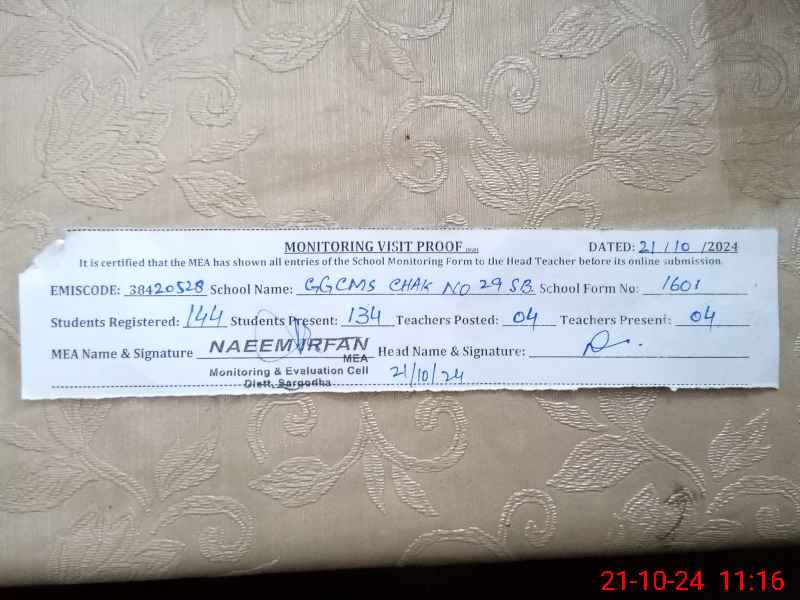 MONITORING VISIT PROOF DATED: 21/10/2024
It is certified that the MEA has shown all entries of the School Monitoring Form to the Head Teacher before its online submission.
EMISCODE: 38420528 School Name: GGCMS CHAK NO 29 SB School Form No: 1601
Students Registered: 144 Students Present: 134 Teachers Posted: 04 Teachers Present: 04
MEA Name & Signature NAEEM IRFAN Head Name & Signature:
MEA
Monitoring & Evaluation Cell 21/10/24
Distt. Sargodha
21-10-24 11:16